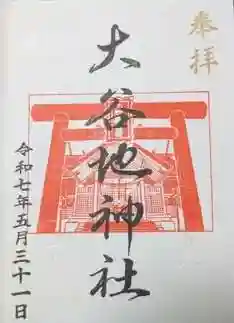 奉拝
大谷地神社
令和七年五月三十一日